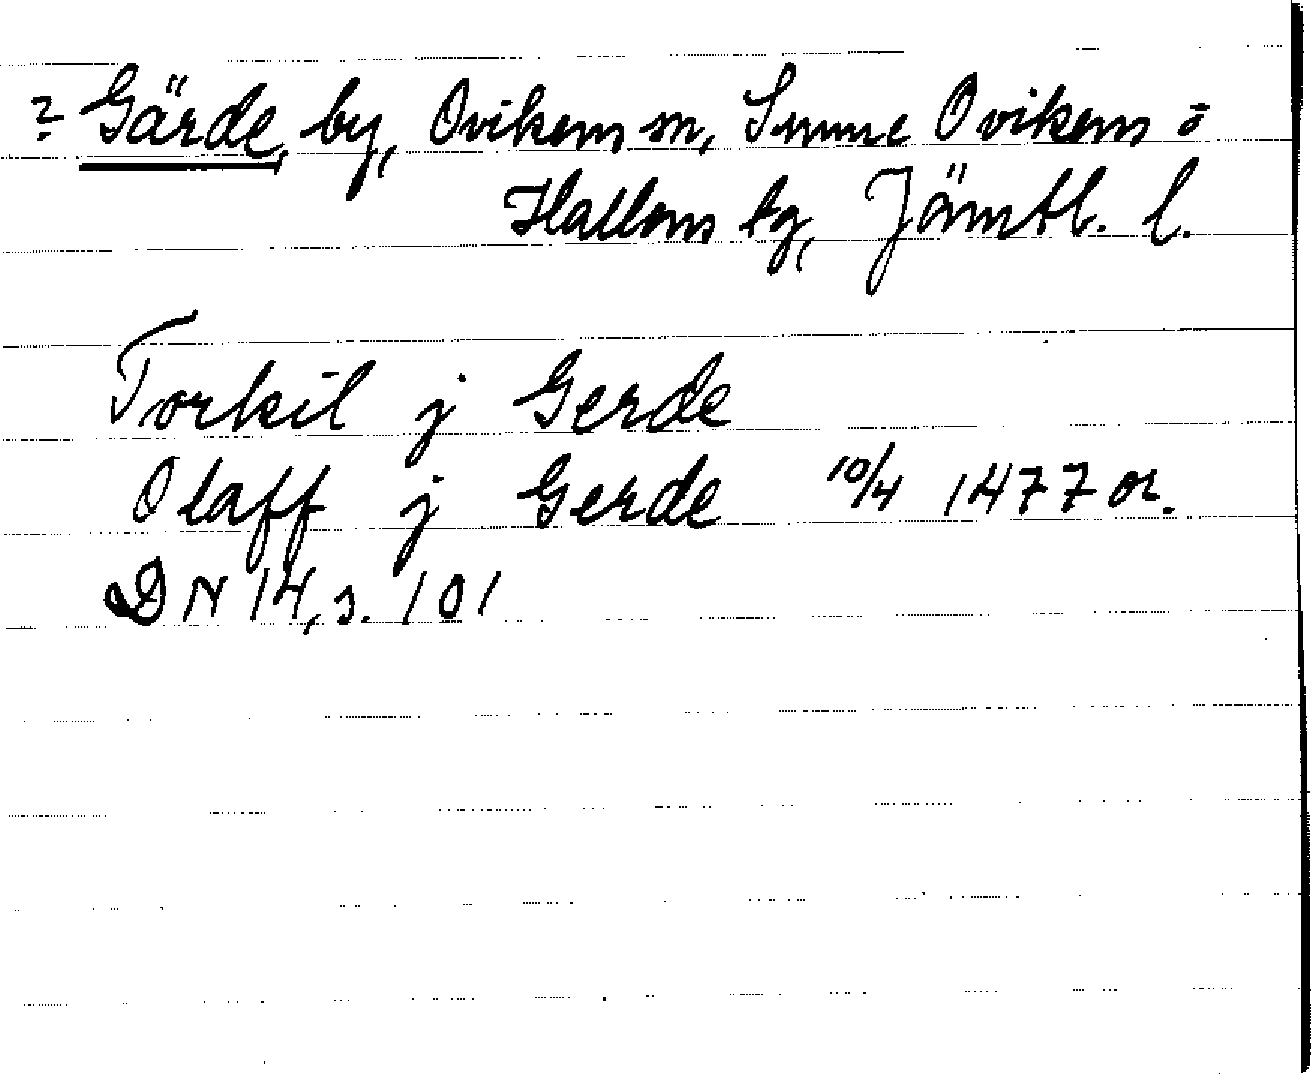 ? Gärde, by, Ovikens sn, Sunne Ovikens o
Hallens tg, Jämtl. l.
Torkil j Gerde
Olaff j Gerde 10/4 1477 or.
DN 14, s. 101